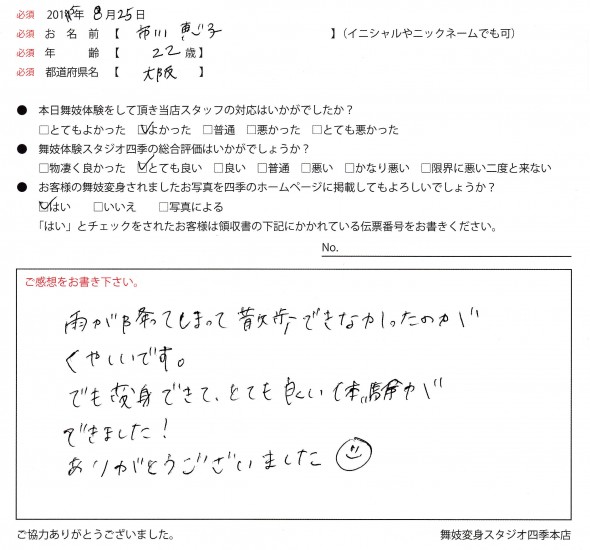 必須 2015年 8月25日
必須 お名前【 市川 恵子 】(イニシャルやニックネームでも可)
必須 年齢【 22歳】
必須 都道府県名【 大阪 】
● 本日舞妓体験をして頂き当店スタッフの対応はいかがでしたか？
□とてもよかった ☑よかった □普通 □悪かった □とても悪かった
● 舞妓体験スタジオ四季の総合評価はいかがでしょうか？
□物凄く良かった ☑とても良い □良い □普通 □悪い □かなり悪い □限界に悪い二度と来ない
● お客様の舞妓変身されましたお写真を四季のホームページに掲載してもよろしいでしょうか？
☑はい □いいえ □写真による
「はい」とチェックをされたお客様は領収書の下記にかかれている伝票番号をお書きください。
No.
ご感想をお書き下さい。
雨が降ってしまって散歩できなかったのが
くやしいです。
でも変身できて、とても良い体験が
できました！
ありがとうございました
ご協力ありがとうございました。
舞妓変身スタジオ四季本店